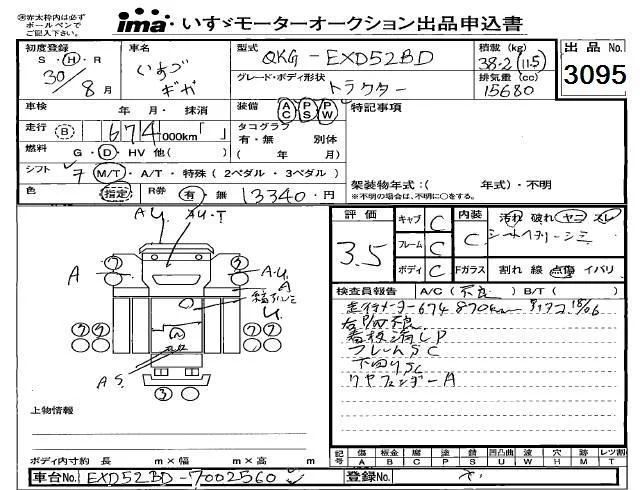 ※赤太枠内は必ず
ボールペンで
ご記入下さい。
ima いすゞモーターオークション出品申込書
初度登録
S・H・R
30/8月
車名
いすゞ
ギガ
型式
QKG-EXD52BD
グレード・ボディ形状
トラクター
積載(kg)
38.2(11.5)
排気量(cc)
15680
出品No.
3095
車検 年 月・抹消
装備 AC PS PW
特記事項
走行 B 674,000km「 」
タコグラフ
有・無 別体
( 年 月)
燃料 G・D・HV 他( )
シフト 7 M/T・A/T・特殊(2ペダル・3ペダル)
架装物年式:( 年式)・不明
※不明の場合は、不明に○をする。
色 指定 R券 有・無 13340・円
評価
3.5
キャブ C
フレーム C
ボディ C
内装 C
Fガラス
汚れ 破れ ヤニ スレ
割れ 線 点傷 イバリ
検査員報告 A/C(不良) B/T( )
走行メーター674870km
右P/W不良
看板消しP
フレームSC
下回りSC
リヤフェンダーA
A
AU
AU・T
A.U.
A
AS
3
上物情報
ボディ内寸約 長 m×幅 m×高 m
記号 傷A 板金B 腐C 塗P 錆S 凹凸曲U 波W 穴H 跡M レツ割T
車台No. EXD52BD-7002560
登録No.